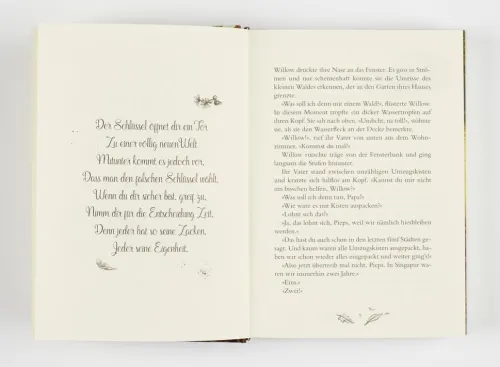 Der Schlüssel öffnet dir ein Tor,
Zu einer völlig neuen Welt.
Mitunter kommt es jedoch vor,
Dass man den falschen Schlüssel wählt.
Wenn du dir sicher bist, greif zu,
Nimm dir für die Entscheidung Zeit.
Denn jeder hat so seine Zacken,
Jeder seine Eigenheit.
Willow drückte ihre Nase an das Fenster. Es goss in Strö-
men und nur schemenhaft konnte sie die Umrisse des
kleinen Waldes erkennen, der an den Garten ihres Hauses
grenzte.
›Was soll ich denn mit einem Wald?‹, flüsterte Willow.
In diesem Moment tropfte ein dicker Wassertropfen auf
ihren Kopf. Sie sah nach oben. ›Undicht, na toll!‹, stöhnte
sie, als sie den Wasserfleck an der Decke bemerkte.
›Willow?‹, rief ihr Vater von unten aus dem Wohn-
zimmer. ›Kommst du mal?‹
Willow rutschte träge von der Fensterbank und ging
langsam die Stufen hinunter.
Ihr Vater stand zwischen unzähligen Umzugskisten
und kratzte sich hilflos am Kopf. ›Kannst du mir nicht
ein bisschen helfen, Willow?‹
›Was soll ich denn tun, Papa?‹
›Wie wäre es mit Kisten auspacken?‹
›Lohnt sich das?‹
›Ja, das lohnt sich, Pieps, weil wir nämlich hierbleiben
werden.‹
›Das hast du auch schon in den letzten fünf Städten ge-
sagt. Und kaum waren alle Umzugskisten ausgepackt, ha-
ben wir schon wieder alles eingepackt und weiter ging's!‹
›Also jetzt übertreib mal nicht, Pieps. In Singapur wa-
ren wir immerhin zwei Jahre.‹
›Eins.‹
›Zwei!‹